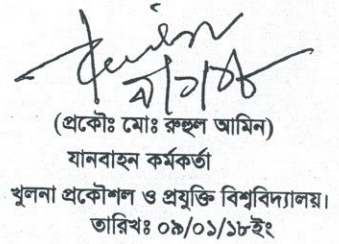 (প্রকৌঃ মোঃ রুহুল আমিন)
যানবাহন কর্মকর্তা
খুলনা প্রকৌশল ও প্রযুক্তি বিশ্ববিদ্যালয়।
তারিখঃ ০৯/০১/১৮ইং